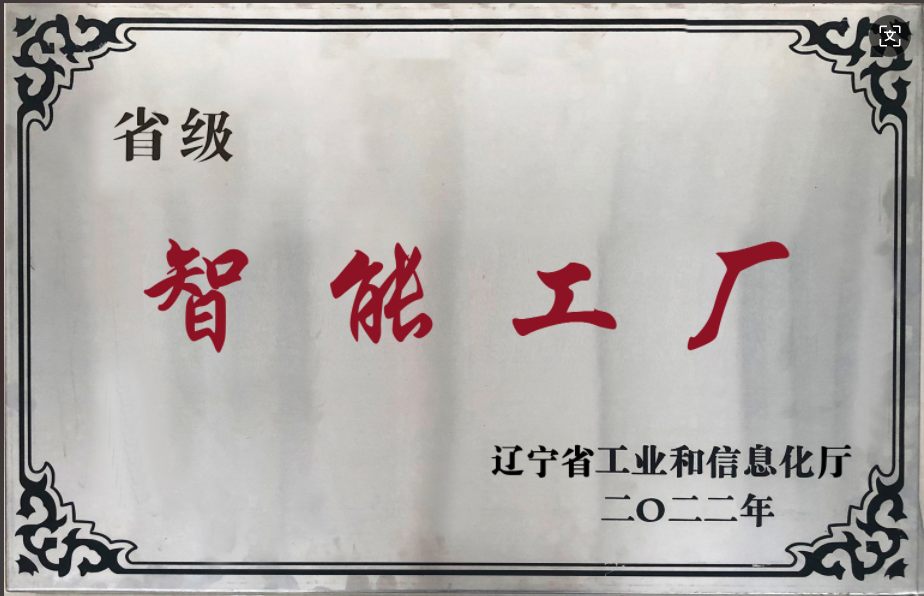 省级
智能工厂
辽宁省工业和信息化厅
二〇二二年